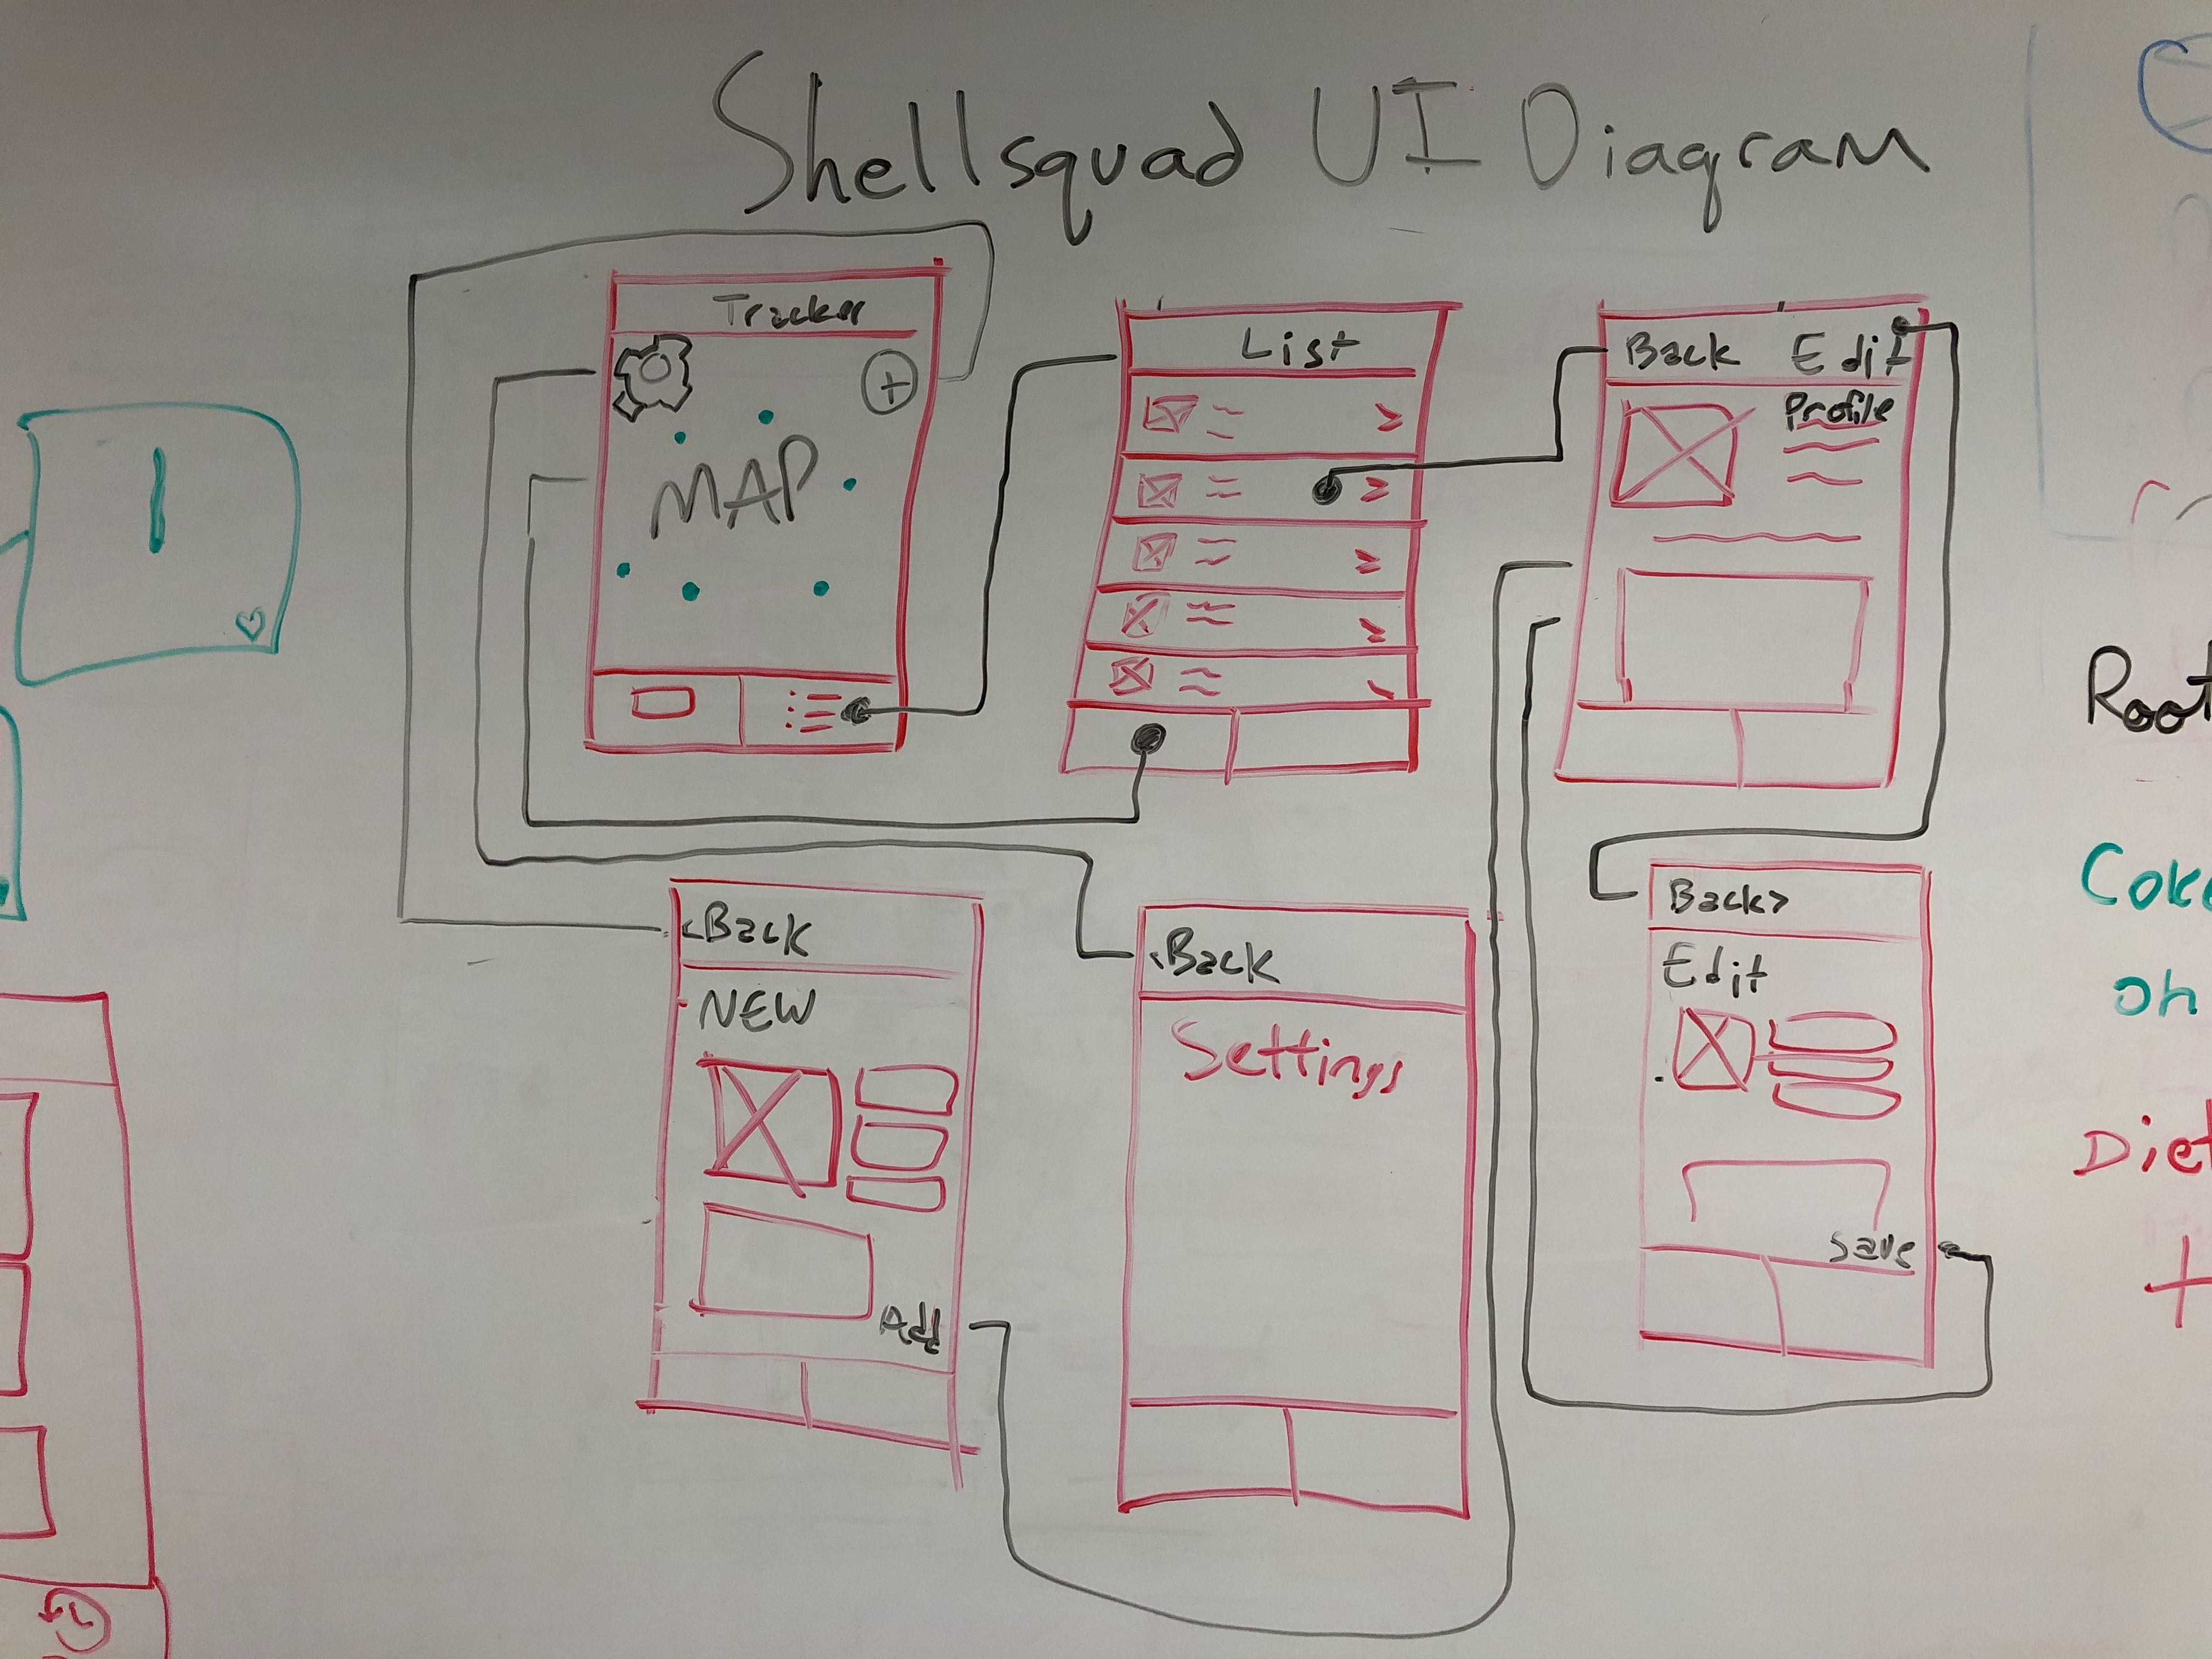 Shellsquad UI Diagram
Tracker
+
MAP
List
Back Edit
Profile
<Back
NEW
Add
<Back
Settings
Back>
Edit
Save
Root
Coke
oh
Diet
+